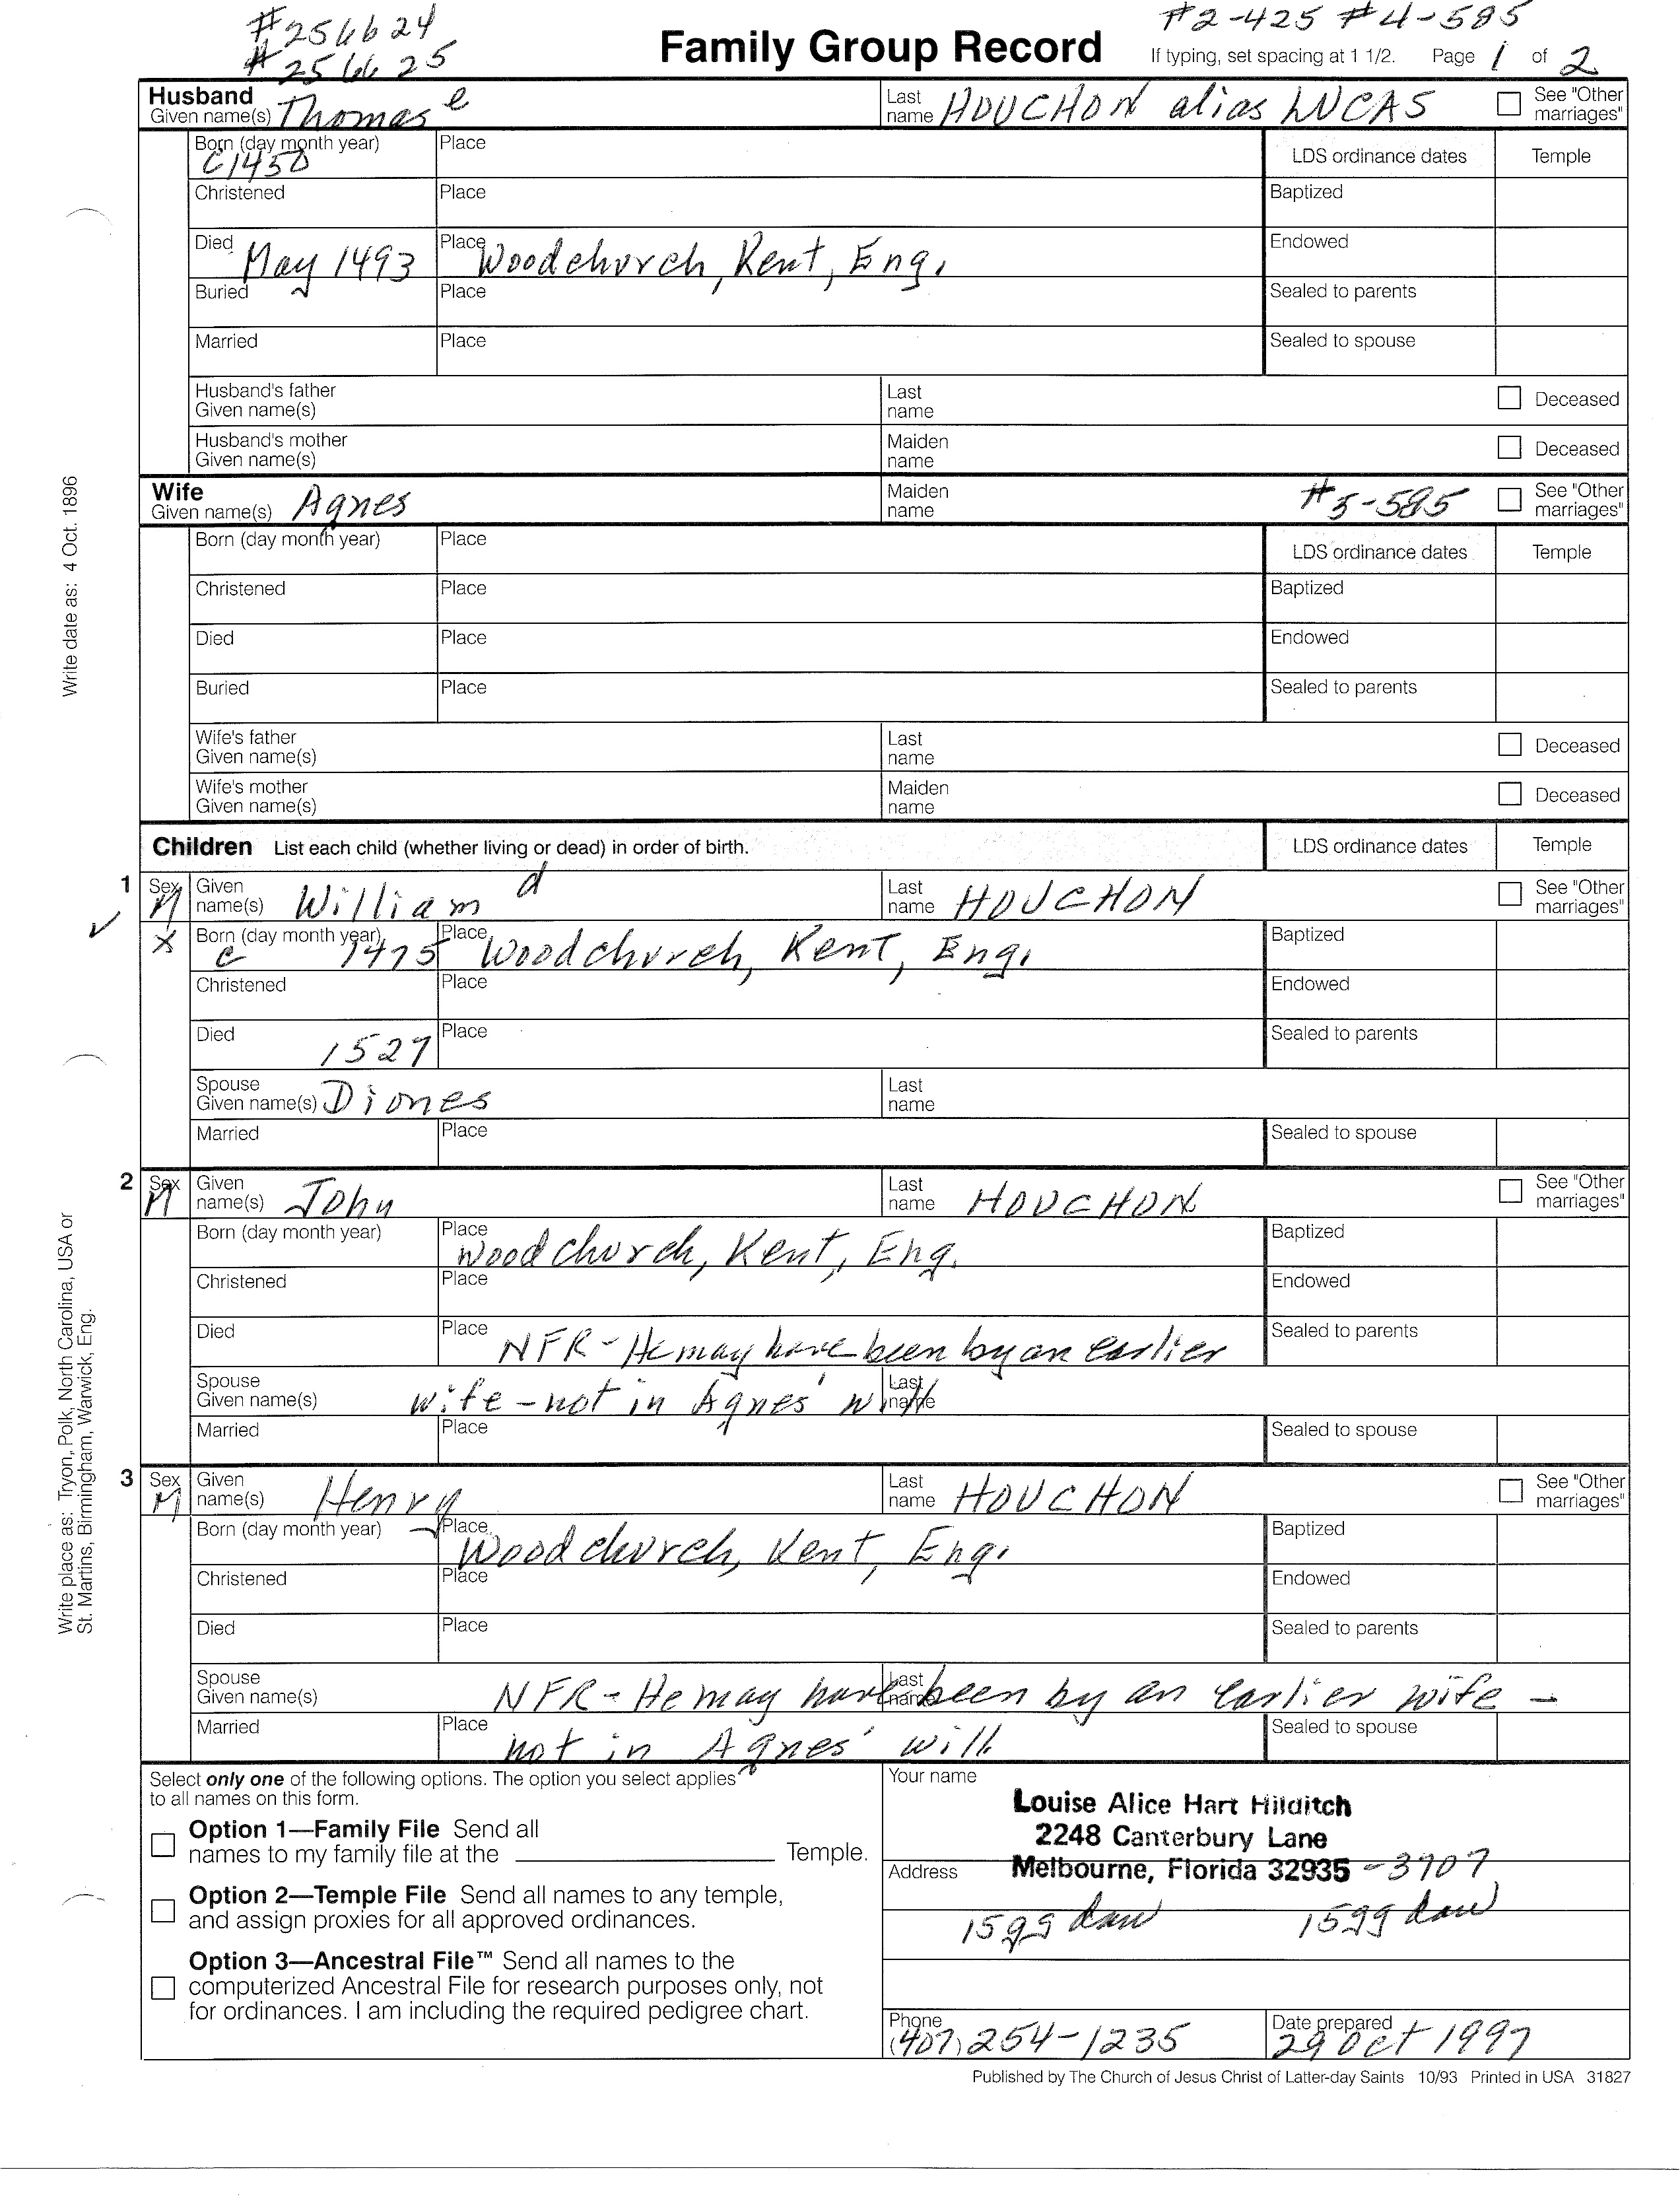 #256624
#256625
#2-425 #4-585
Family Group Record
If typing, set spacing at 1 1/2. Page 1 of 2
Husband
Given name(s) Thomas e
Last name HOUCHON alias LUCAS
See "Other marriages"
Born (day month year) C1450
Place
LDS ordinance dates
Temple
Christened
Place
Baptized
Died May 1493
Place Woodchurch, Kent, Eng.
Endowed
Buried
Place
Sealed to parents
Married
Place
Sealed to spouse
Husband's father
Given name(s)
Last name
Deceased
Husband's mother
Given name(s)
Maiden name
Deceased
Wife
Given name(s) Agnes
Maiden name
#5-585
See "Other marriages"
Born (day month year)
Place
LDS ordinance dates
Temple
Christened
Place
Baptized
Died
Place
Endowed
Buried
Place
Sealed to parents
Wife's father
Given name(s)
Last name
Deceased
Wife's mother
Given name(s)
Maiden name
Deceased
Children List each child (whether living or dead) in order of birth.
LDS ordinance dates
Temple
1 Sex M
Given name(s) William d
Last name HOUCHON
See "Other marriages"
X
Born (day month year) c 1475
Place Woodchurch, Kent, Eng.
Baptized
Christened
Place
Endowed
Died 1527
Place
Sealed to parents
Spouse
Given name(s) Diones
Last name
Married
Place
Sealed to spouse
2 Sex M
Given name(s) John
Last name HOUCHON
See "Other marriages"
Born (day month year)
Place Woodchurch, Kent, Eng.
Baptized
Christened
Place
Endowed
Died
Place NFR - He may have been by an earlier
Sealed to parents
Spouse
Given name(s) wife - not in Agnes' will
Last name
Married
Place
Sealed to spouse
3 Sex M
Given name(s) Henry
Last name HOUCHON
See "Other marriages"
Born (day month year)
Place Woodchurch, Kent, Eng.
Baptized
Christened
Place
Endowed
Died
Place
Sealed to parents
Spouse
Given name(s)
Last name
NFR - He may have been by an earlier wife -
Married
Place not in Agnes' will
Sealed to spouse
Select only one of the following options. The option you select applies
to all names on this form.
Option 1—Family File Send all
names to my family file at the Temple.
Option 2—Temple File Send all names to any temple,
and assign proxies for all approved ordinances.
Option 3—Ancestral File™ Send all names to the
computerized Ancestral File for research purposes only, not
for ordinances. I am including the required pedigree chart.
Your name
Louise Alice Hart Hilditch
2248 Canterbury Lane
Address
Melbourne, Florida 32935 -3707
15gg dau 15gg dau
Phone (407) 254-1235
Date prepared 29 Oct 1997
Published by The Church of Jesus Christ of Latter-day Saints 10/93 Printed in USA 31827
Write date as: 4 Oct. 1896
Write place as: Tryon, Polk, North Carolina, USA or
St. Martins, Birmingham, Warwick, Eng.